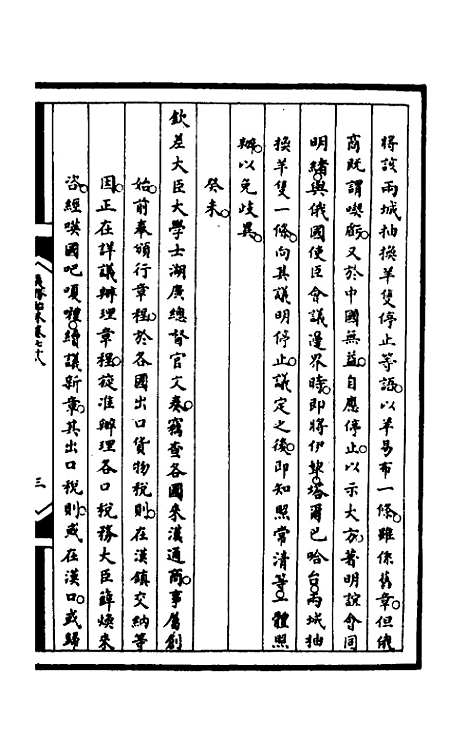 將該兩城抽換羊隻停止等語。以羊易布一條。雖係舊章。但俄
商既謂喫虧。又於中國無益。自應停止。以示大方。著明誼會同
明緒。與俄國使臣會議邊界時。即將伊犂。塔爾巴哈台。兩城抽
換羊隻一條。向其議明停止。議定之後。即知照常清等。一體照
辦。以免歧異。
癸未。
欽差大臣大學士湖廣總督官文奏。竊查各國來漢通商。事屬創
始。前奉頒行章程。於各國出口貨物稅則。在漢鎮交納等
因。正在詳議辦理章程。旋准辦理各口稅務大臣薛煥來
咨。經嘆國吧嗄禮。續議新章。其出口稅則。或在漢口。或歸
三